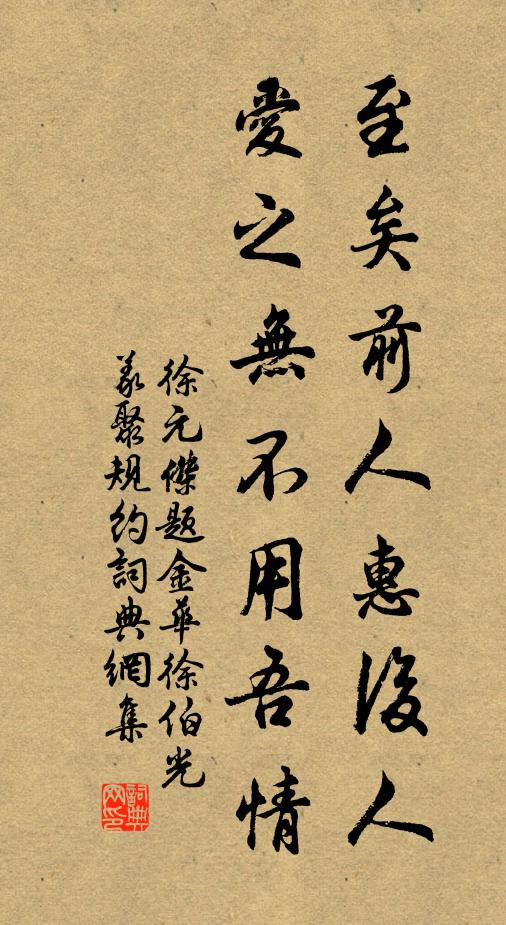 至矣前人惠後人
愛之無不用吾情
徐元傑題金華徐伯光
義聚規約詞典網集
詞典
网印